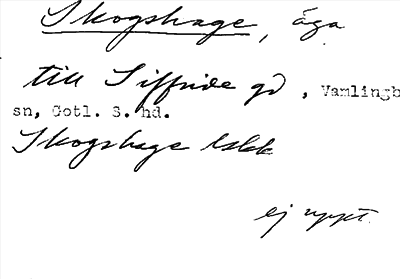 Skogshage, äga
till Siffride gd, Vamlingb
sn, Gotl. S. hd.
Skogshage
ej uppt.